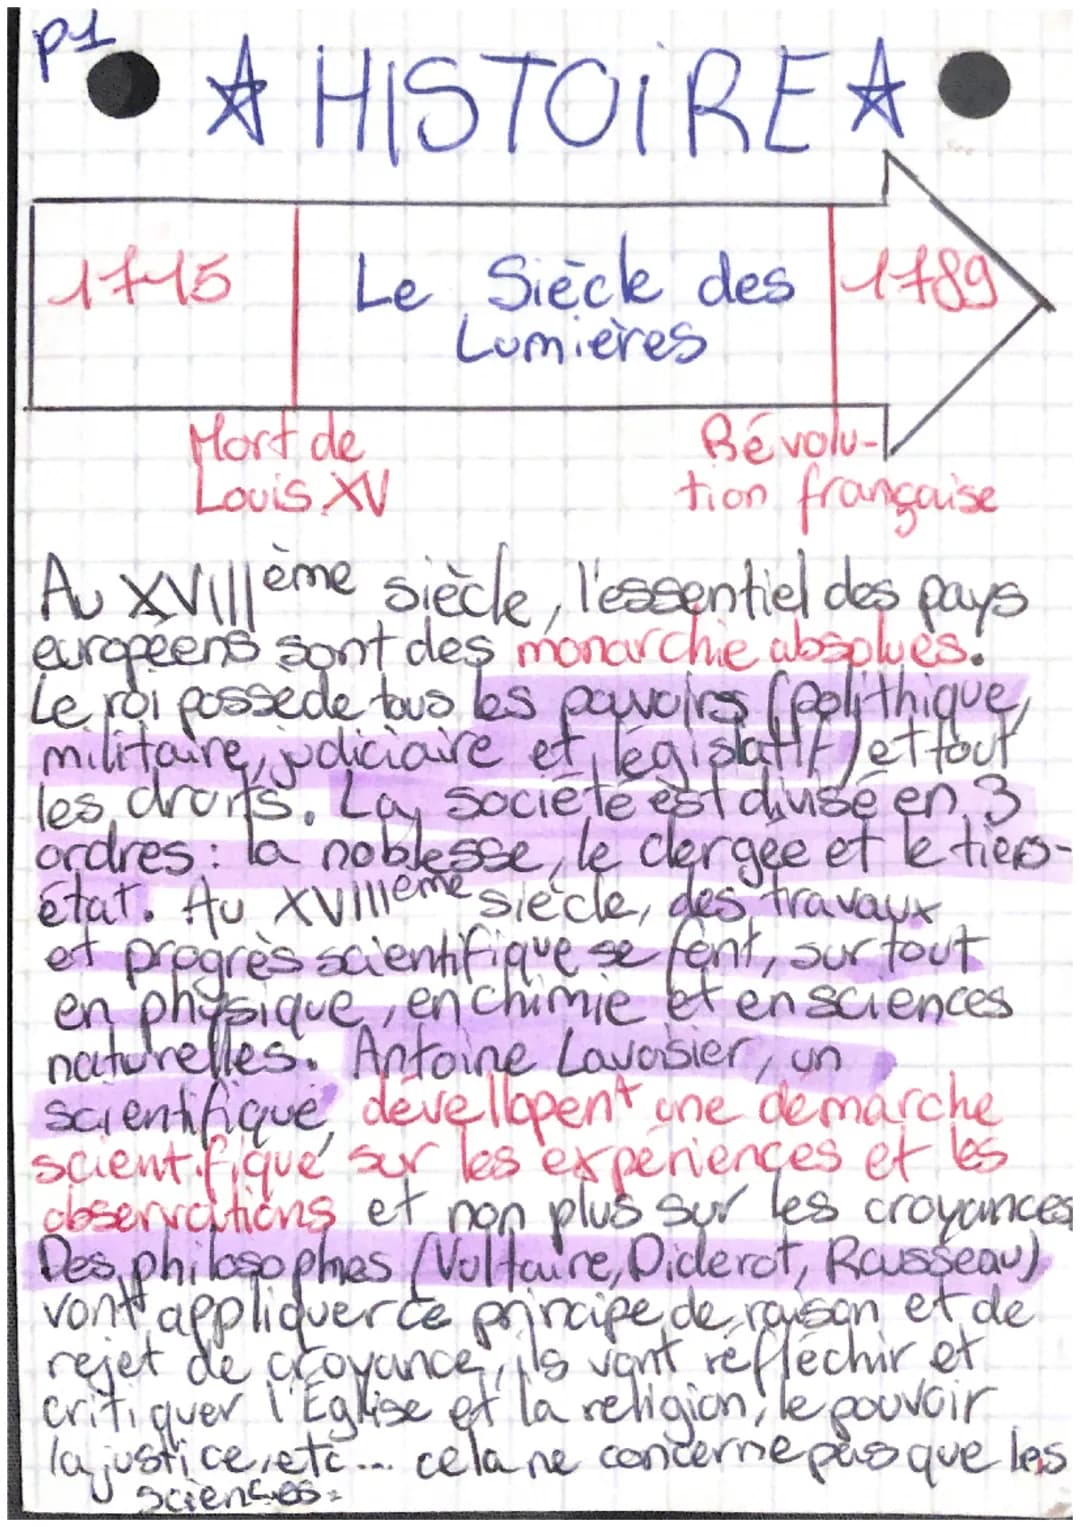 p1
HISTOIRE
1715
Le Siècle des
Lumières
1789
Mort de
Louis XV
Révolu-
tion française
Au XVIIIème siècle, l'essentiel des pays
européens sont des monarchie absolues.
Le roi possède tous les pouvoirs (polithique,
militaire, judiciaire et législatif) et tout
les droits. La société est divisé en 3
ordres : la noblesse, le clergée et le tiers-
état. Au XVIIIème siècle, des travaux
et progrès scientifique se font, surtout
en physique, en chimie et en sciences
naturelles. Antoine Lavoisier, un
scientifique, dévellopent une démarche
scientifique sur les expériences et les
observations et non plus sur les croyances
Des philosophes (Voltaire, Diderot, Rousseau)
vont appliquer ce principe de raison et de
rejet de croyance, ils vont réfléchir et
critiquer l'Église et la religion, le pouvoir
la justice, etc... cela ne concerne pas que les
sciences.